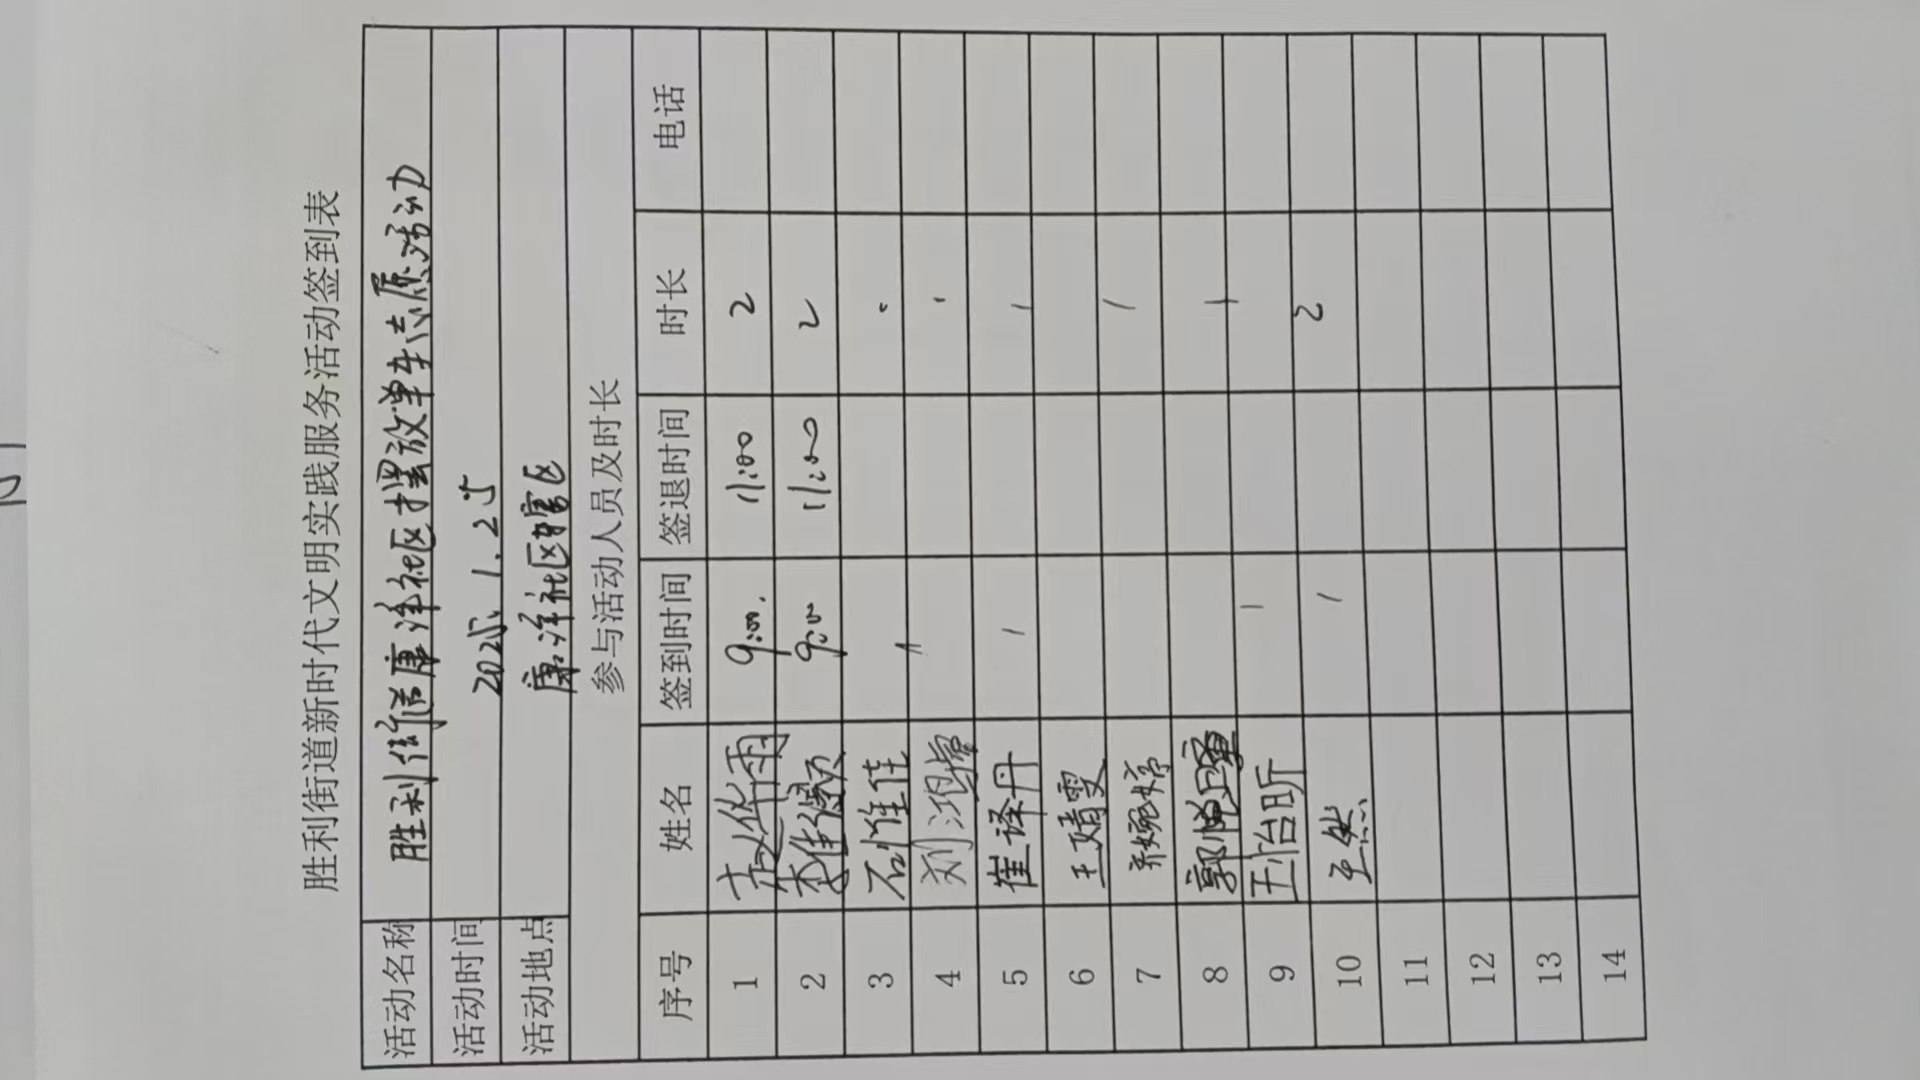 胜利街道新时代文明实践服务活动签到表
活动名称 胜利街道康洋社区摆放单车志愿活动
活动时间 2025.1.25
活动地点 康洋社区辖区
参与活动人员及时长
序号 姓名 签到时间 签退时间 时长 电话
1 赵华雨 9:00. 11:00 2
2 9:00 11:00 2
3 石惟佳
4 刘鸿
5 崔译丹
6 王婧雯
7 齐婉婷
8 郭悦
9 王怡昕
10 王然 2
11
12
13
14